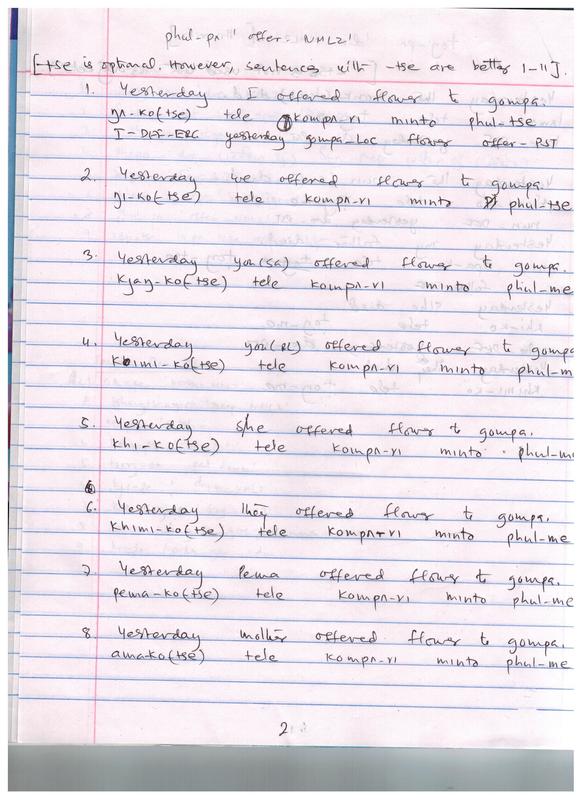 phul-pʌ 'offer-NML2'
[-tse is optional. However, sentences with -tse are better 1-11].
1. Yesterday I offered flower to gompa.
ŋʌ-ko(tse) tele kompʌ-ri minto phul-tse
I-DEF-ERG yesterday gompa-LOC flower offer-PST
2. Yesterday we offered flower to gompa.
ŋi-ko(-tse) tele kompʌ-ri minto phul-tse
3. Yesterday you(SG) offered flower to gompa.
kjaŋ-ko(-tse) tele kompʌ-ri minto phul-me
4. Yesterday you(PL) offered flower to gompa
khimi-ko(tse) tele kompʌ-ri minto phul-m
5. Yesterday s/he offered flower to gompa.
khi-ko(tse) tele kompʌ-ri minto phul-me
6. Yesterday they offered flower to gompa.
khimi-ko(tse) tele kompʌ-ri minto phul-me
7. Yesterday Pema offered flower to gompa.
pema-ko(tse) tele kompʌ-ri minto phul-me
8 Yesterday mother offered flower to gompa.
ama-ko(tse) tele kompʌ-ri minto phul-me
2